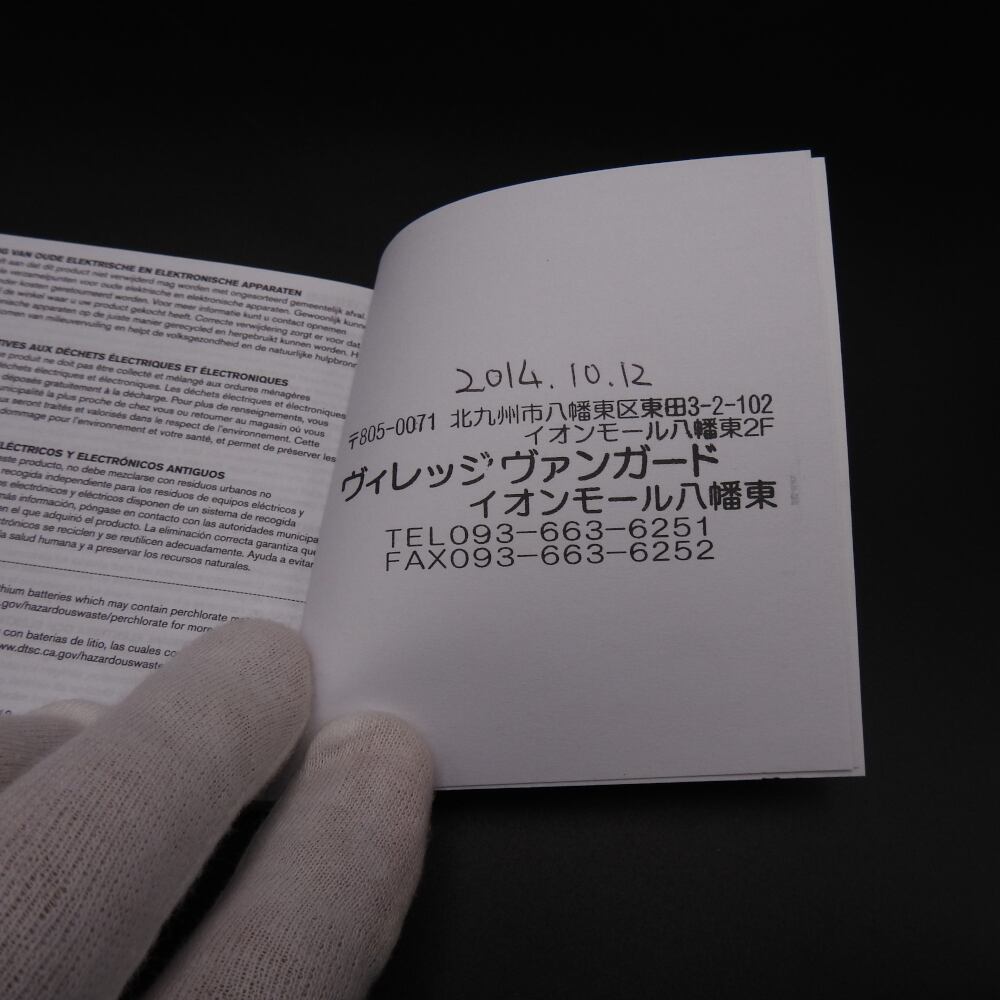 G VAN OUDE ELEKTRISCHE EN ELEKTRONISCHE APPARATEN
aan dat dit product niet verwijderd mag worden met ongesorteerd gemeentelijk afval.
verzamelpunten voor oude elektrische en elektronische apparaten. Gewoonlijk kunn
kosten geretourneerd worden. Voor meer informatie kunt u contact opnemen
de winkel waar u uw product gekocht heeft. Correcte verwijdering zorgt er voor dat
nische apparaten op de juiste manier gerecycled en hergebruikt kunnen worden. H
omen van milieuvervuiling en helpt de volksgezondheid en de natuurlijke hulpbronn
TIVES AUX DÉCHETS ÉLECTRIQUES ET ÉLECTRONIQUES
produit ne doit pas être collecté et mélangé aux ordures ménagères
déchets électriques et électroniques. Les déchets électriques et électroniques
déposés gratuitement à la décharge. Pour plus de renseignements, vous
unicipalité la plus proche de chez vous ou retourner au magasin où vous
us seront traités et valorisés dans le respect de l'environnement. Cette
dommage pour l'environnement et votre santé, et permet de préserver les
LÉCTRICOS Y ELECTRÓNICOS ANTIGUOS
este producto, no debe mezclarse con residuos urbanos no
recogida independiente para los residuos de equipos eléctricos y
s electrónicos y eléctricos disponen de un sistema de recogida
más información, póngase en contacto con las autoridades municipa
en el que adquirió el producto. La eliminación correcta garantiza que
ctrónicos se reciclen y se reutilicen adecuadamente. Ayuda a evitar
la salud humana y a preservar los recursos naturales.
hium batteries which may contain perchlorate m
.gov/hazardouswaste/perchlorate for more
con baterias de litio, las cuales co
ww.dtsc.ca.gov/hazardouswaste
2014.10.12
〒805-0071 北九州市八幡東区東田3-2-102
イオンモール八幡東2F
ヴィレッジヴァンガード
イオンモール八幡東
TEL093-663-6251
FAX093-663-6252